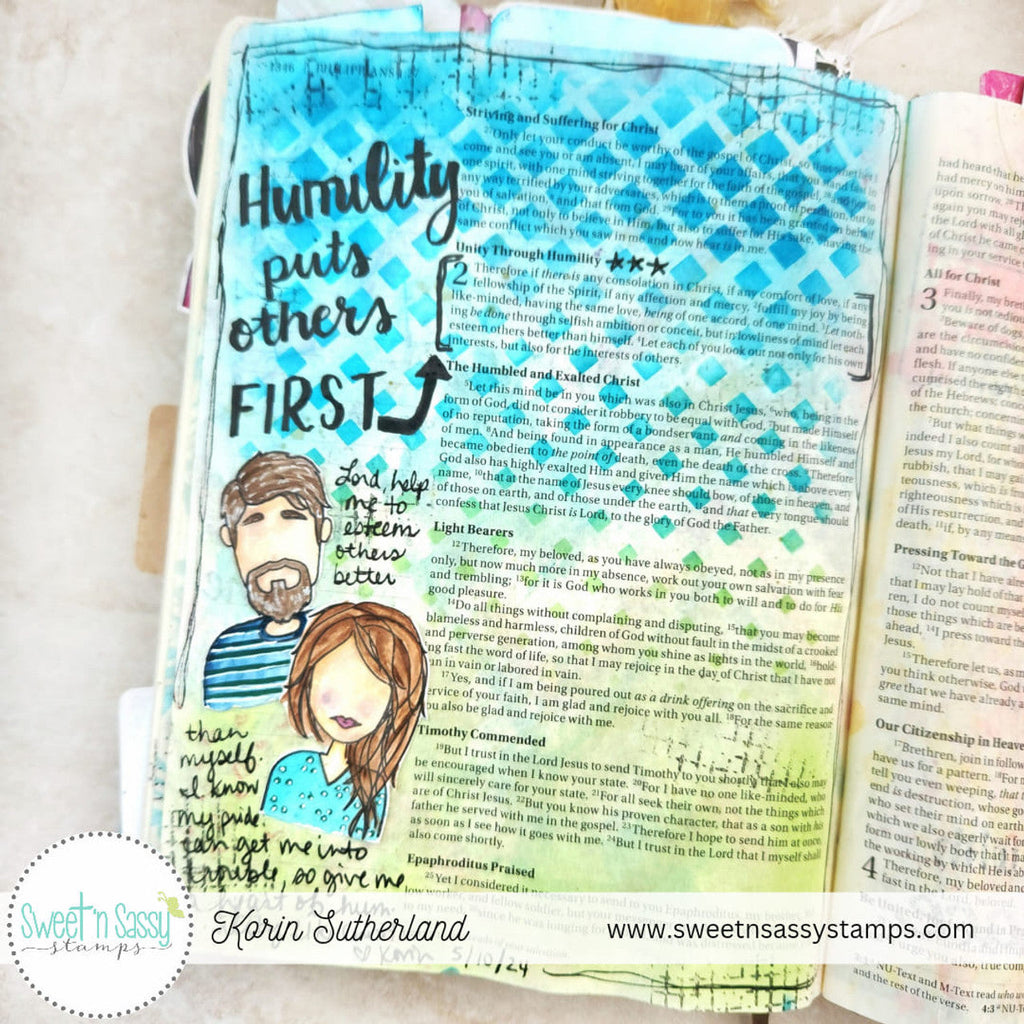 1346 PHILIPPIANS 1:27
Humility
puts
others
FIRST
Lord, help
me to
esteem
others
better
than
myself.
I know
my pride
can get me into
trouble, so give me
a heart of hum
♡ Korin 5/10/24
Striving and Suffering for Christ
27Only let your conduct be worthy of the gospel of Christ, so that whether
come and see you or am absent, I may hear of your affairs, that you stand fast in
one spirit, with one mind striving together for the faith of the gospel, 28and not in
any way terrified by your adversaries, which is to them a proof of perdition, but to
you of salvation, and that from God. 29For to you it has been granted on behalf
of Christ, not only to believe in Him, but also to suffer for His sake, 30having the
same conflict which you saw in me and now hear is in me.
Unity Through Humility ★★★
2 Therefore if there is any consolation in Christ, if any comfort of love, if any
fellowship of the Spirit, if any affection and mercy, 2fulfill my joy by being
like-minded, having the same love, being of one accord, of one mind. 3Let noth-
ing be done through selfish ambition or conceit, but in lowliness of mind let each
esteem others better than himself. 4Let each of you look out not only for his own
interests, but also for the interests of others.
The Humbled and Exalted Christ
5Let this mind be in you which was also in Christ Jesus, 6who, being in the
form of God, did not consider it robbery to be equal with God, 7but made Himself
of no reputation, taking the form of a bondservant, and coming in the likeness
of men. 8And being found in appearance as a man, He humbled Himself and
became obedient to the point of death, even the death of the cross. 9Therefore
God also has highly exalted Him and given Him the name which is above every
name, 10that at the name of Jesus every knee should bow, of those in heaven, and
of those on earth, and of those under the earth, 11and that every tongue should
confess that Jesus Christ is Lord, to the glory of God the Father.
Light Bearers
12Therefore, my beloved, as you have always obeyed, not as in my presence
only, but now much more in my absence, work out your own salvation with fear
and trembling; 13for it is God who works in you both to will and to do for His
good pleasure.
14Do all things without complaining and disputing, 15that you may become
blameless and harmless, children of God without fault in the midst of a crooked
and perverse generation, among whom you shine as lights in the world, 16hold-
ing fast the word of life, so that I may rejoice in the day of Christ that I have not
run in vain or labored in vain.
17Yes, and if I am being poured out as a drink offering on the sacrifice and
service of your faith, I am glad and rejoice with you all. 18For the same reason
you also be glad and rejoice with me.
Timothy Commended
19But I trust in the Lord Jesus to send Timothy to you shortly, that I also may
be encouraged when I know your state. 20For I have no one like-minded, who
will sincerely care for your state. 21For all seek their own, not the things which
are of Christ Jesus. 22But you know his proven character, that as a son with his
father he served with me in the gospel. 23Therefore I hope to send him at once,
as soon as I see how it goes with me. 24But I trust in the Lord that I myself shall
also come shortly.
Epaphroditus Praised
25Yet I considered it necessary to send to you Epaphroditus, my brother,
low worker, and fellow soldier, but your
to my need; 26since he was longing for
was distressed because
had heard that
had mercy on him
upon sorrow. 28
again you may rej
the Lord with all gl
of Christ he came
ing in your service
All for Christ
3 Finally, my bre
you is not tedious
2Beware of dogs,
are the circumcision
and have no confide
flesh. If anyone else
cumcised the eighth
of the Hebrews; conc
the church; concer
7But what things
indeed I also count
Jesus my Lord, for wh
rubbish, that I may gai
teousness, which is fr
righteousness which is
of His resurrection, and
death, 11if, by any mean
Pressing Toward the G
12Not that I have alre
that I may lay hold of that
ren, I do not count mysel
those things which are be
ahead, 14I press toward the
Jesus.
15Therefore let us, as m
you think otherwise, God
gree that we have already a
same mind.
Our Citizenship in Heave
17Brethren, join in follow
have us for a pattern. 18For m
tell you even weeping, that t
end is destruction, whose go
who set their mind on earth
which we also eagerly wait fo
form our lowly body that it ma
the working by which He is ab
4 Therefore, my beloved and
fast in the Lord, beloved.
Be United,
urge you also, true com
3:3 NU-Text and M-Text read who wo
and the rest of the verse. 4:3 NU-T
Sweet 'n Sassy
stamps
Korin Sutherland
www.sweetnsassystamps.com